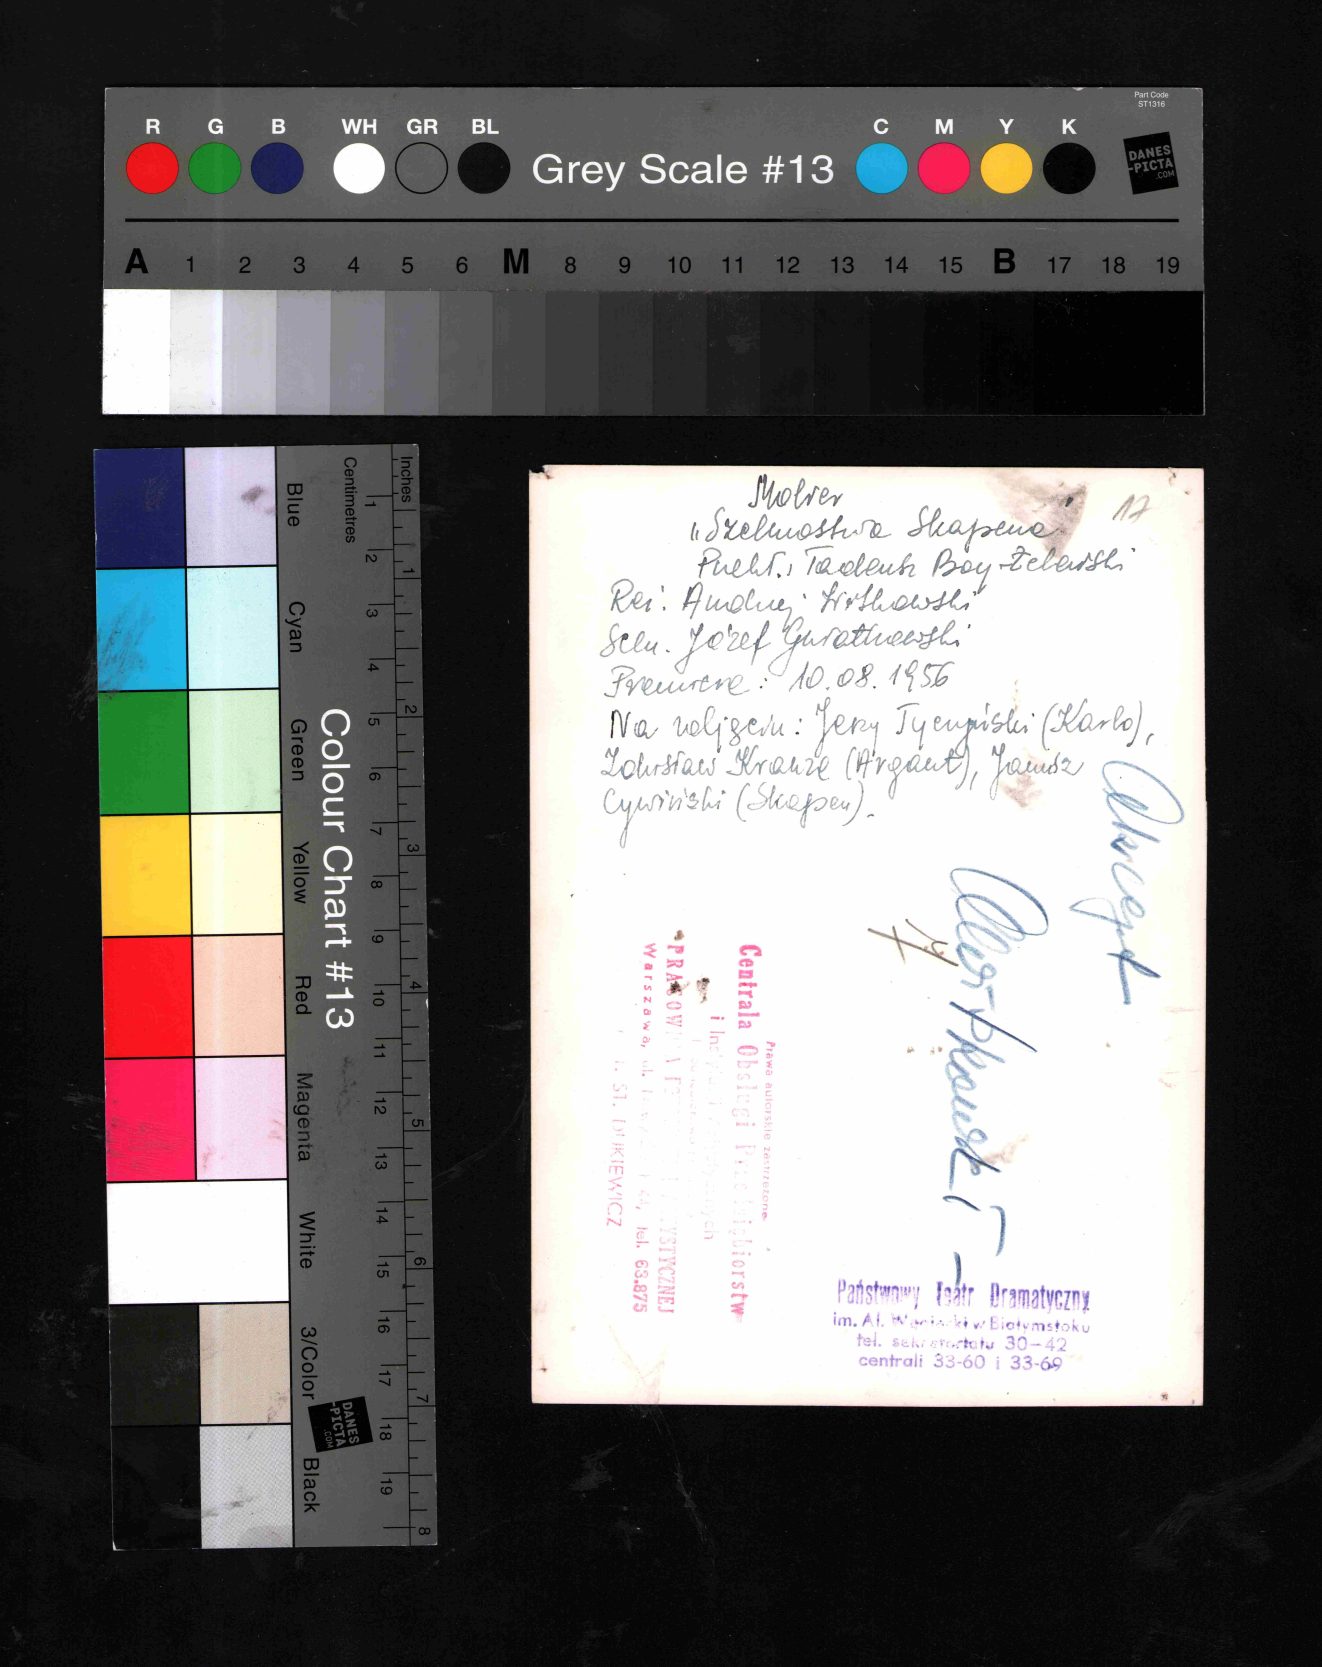 Part Code
ST1316
R G B WH GR BL Grey Scale #13 C M Y K
DANES
-PICTA
.COM
A 1 2 3 4 5 6 M 8 9 10 11 12 13 14 15 B 17 18 19
Colour Chart #13
Blue
Cyan
Green
Yellow
Red
Magenta
White
3/Color
Black
Centimetres
1 2 3 4 5 6 7 8 9 10 11 12 13 14 15 16 17 18 19
Inches
1 2 3 4 5 6 7 8
DANES
-PICTA
.COM
17
Molier
„Szelmostwa Skapena"
Przekł.: Tadeusz Boy-Żeleński
Reż. Andrzej Witkowski
Scen. Józef
Premiera: 10.08.1956
Na zdjęciu: Jerzy (Karlo),
Zdzisław Krauze (Argant), Janusz
Cywiński (Skapen).
Prawa autorskie zastrzeżone
Centrala Obsługi Przedsiębiorstw
i
PRACOWNIA
Warszawa, ul. tel. 63.875
Państwowy Teatr Dramatyczny
im. Al. Węgierki w Białymstoku
tel. sekretariatu 30-42
centrali 33-60 i 33-69